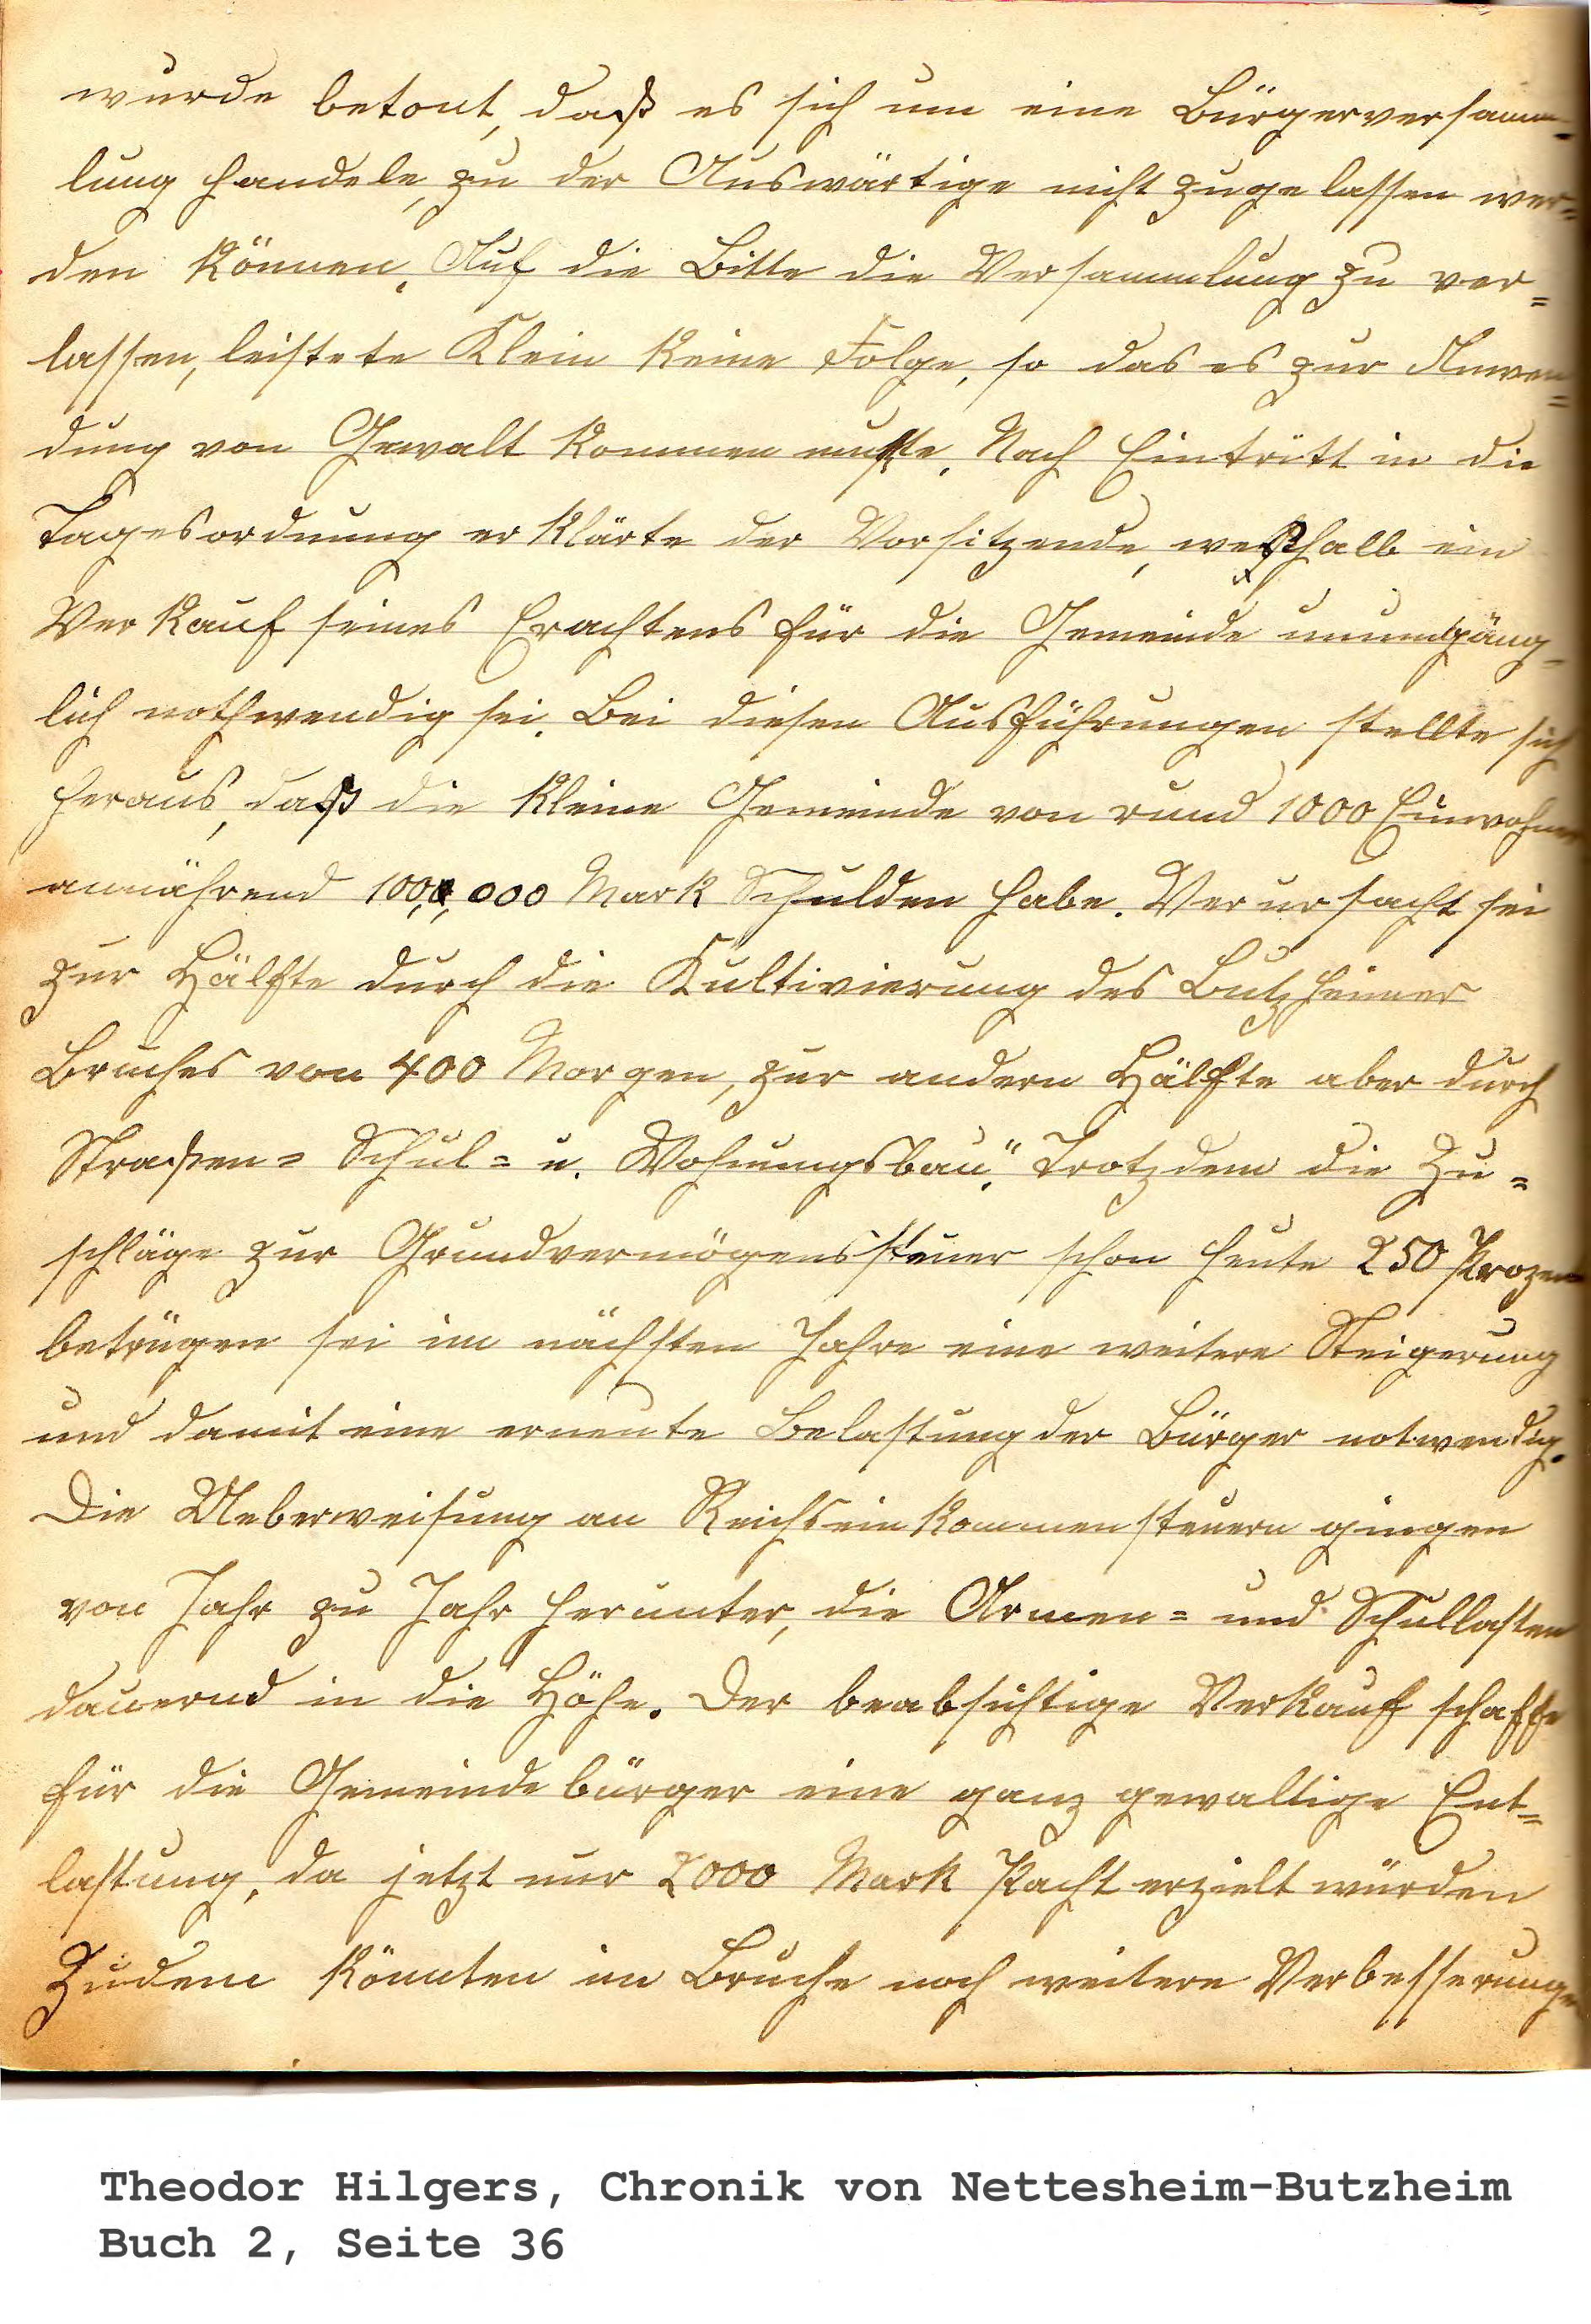 wurde betont, daß es sich um eine Bürgerversamm=
lung handele, zu der Auswärtige nicht zugelassen wer=
den können. Auf die Bitte die Versammlung zu ver=
lassen, leistete Klein keine Folge, so das es zur Anwen=
dung von Gewalt kommen mußte. Nach Eintritt in die
Tagesordnung erklärte der Vorsitzende, weßhalb ein
Verkauf seines Erachtens für die Gemeinde unumgäng=
lich nothwendig sei. Bei diesen Ausführungen stellte sich
heraus, daß die kleine Gemeinde von rund 1000 Einwohner
annährend 100,000 Mark Schulden habe. Verursacht sei
zur Hälfte durch die Kultivierung des Butzheimer
Bruches von 400 Morgen, zur andern Hälfte aber durch
Straßen= Schul= u. Wohnungsbau." Trotzdem die Zu=
schläge zur Grundvermögenssteuer schon heute 250 Prozent
betrügen sei im nächsten Jahre eine weitere Steigerung
und damit eine erneute Belastung der Bürger notwendig.
Die Ueberweisung an Reichseinkommensteuern gingen
von Jahr zu Jahr herunter, die Armen= und Schullasten
dauernd in die Höhe. Der beabsichtige Verkauf schaffe
für die Gemeindebürger eine ganz gewaltige Ent=
lastung, da jetzt nur 2000 Mark Pacht erzielt würden
Zudem könnten im Bruche noch weitere Verbesserungen
Theodor Hilgers, Chronik von Nettesheim-Butzheim
Buch 2, Seite 36